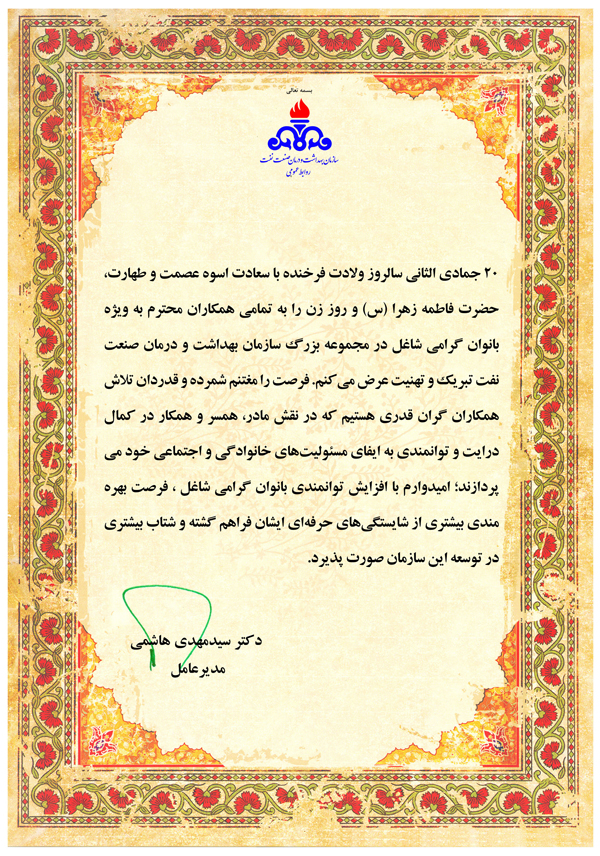 بسمه تعالی
سازمان بهداشت و درمان صنعت نفت
روابط عمومی
۲۰ جمادی الثانی سالروز ولادت فرخنده با سعادت اسوه عصمت و طهارت،
حضرت فاطمه زهرا (س) و روز زن را به تمامی همکاران محترم به ویژه
بانوان گرامی شاغل در مجموعه بزرگ سازمان بهداشت و درمان صنعت
نفت تبریک و تهنیت عرض می کنم. فرصت را مغتنم شمرده و قدردان تلاش
همکاران گران قدری هستیم که در نقش مادر، همسر و همکار در کمال
درایت و توانمندی به ایفای مسئولیت‌های خانوادگی و اجتماعی خود می
پردازند؛ امیدوارم با افزایش توانمندی بانوان گرامی شاغل ، فرصت بهره
مندی بیشتری از شایستگی‌های حرفه‌ای ایشان فراهم گشته و شتاب بیشتری
در توسعه این سازمان صورت پذیرد.
دکتر سیدمهدی هاشمی
مدیرعامل